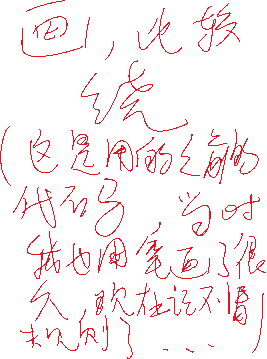 ，比较
绕
(这是用的之前的
代码，当时
我也用画了很
久 现在记不清
规则了...)